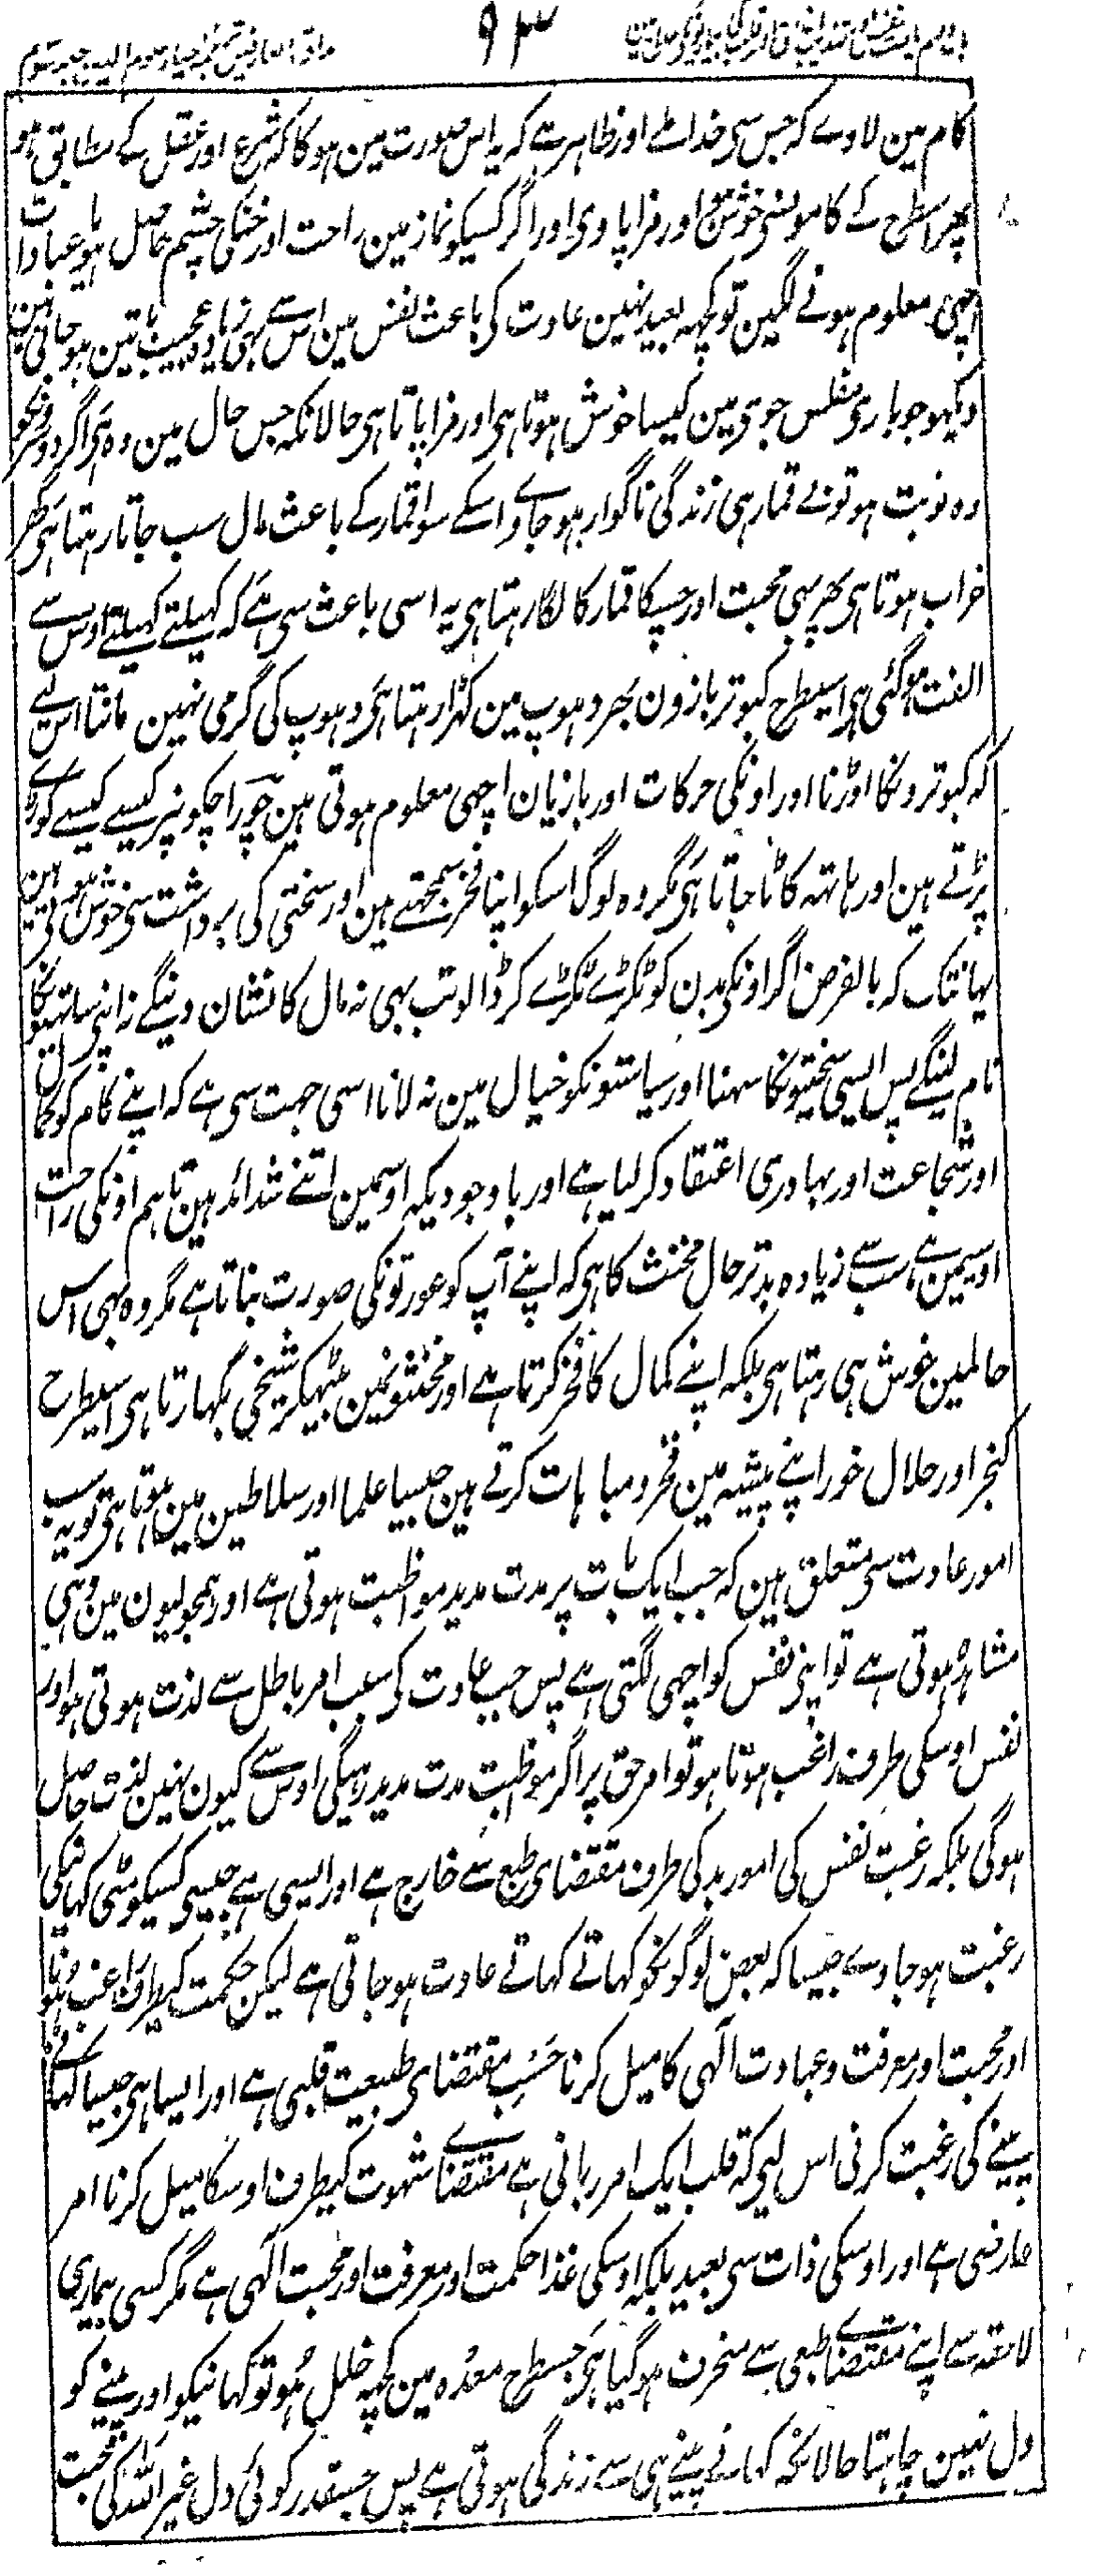 ۹۳
کام مین لاوے کہ جس سی خدا ملے اور ظاہر ہے کہ یہ اس صورت مین ہوگا کہ شرع اور عقل کے مطابق ہو
پھر اسطرح کے کامونسی خوش ہو اور مزا پاوی اور اگر کسیکو نماز مین راحت اور خنکی چشم حاصل ہو یا عبادات
اچہی معلوم ہونے لگین تو کچہہ بعید نہین عادت کی باعث نفس مین اس سے بہی زیادہ عجیب باتین ہو جاتی ہین
دیکہو جواری مفلس جوی مین کیسا خوش ہوتا ہی اور مزا پاتا ہی حالانکہ جس حال مین وہ ہی اگر دوسرونکو
وہ نوبت ہو تو بے قمار ہی زندگی ناگوار ہو جاوے اسکے سوا قمار کے باعث مال سب جاتا رہتا ہی گھر
خراب ہوتا ہی پھر بہی محبت اور چسکا قمار کا لگا رہتا ہی یہ اسی باعث سی ہے کہ کہیلتے کہیلتے اوس سے
الفت ہو گئی ہی اسیطرح کبوتر باز دن بہر دہوپ مین کہڑا رہتا ہی دہوپ کی گرمی نہین مانتا اس لیے
کہ کبوترونکا اوڑنا اور اونکی حرکات اور بازیان اچہی معلوم ہوتی ہین چور اچکونپر کیسے کیسے کوڑے
پڑتے ہین اور ہاتہہ کاٹا جاتا ہی مگر وہ لوگ اسکو اپنا فخر سمجہتے ہین اور سختی کی برداشت سی خوش ہوتی ہین
یہانتک کہ بالفرض اگر اونکی بدن کو ٹکڑے ٹکڑے کر ڈالو تب بہی نہ مال کا نشان دینگے نہ اپنی ساتہیونکا
نام لینگے پس ایسی سختیونکا سہنا اور سیاستونکو خیال مین نہ لانا اسی جہت سی ہے کہ اپنے کام کو کمال
اور شجاعت اور بہادری اعتقاد کر لیا ہے اور باوجودیکہ اوسمین اتنے شدائد ہین تاہم اونکی راحت
اوسیمین ہے سب سے زیادہ بدتر حال مخنث کا ہی کہ اپنے آپ کو عورتونکی صورت بناتا ہے مگر وہ بہی اس
حالمین خوش ہی رہتا ہی بلکہ اپنے کمال کا فخر کرتا ہے اور مخنثونمین بیٹہکر شیخی بگہارتا ہی اسیطرح
کنجر اور حلال خور اپنے پیشہ مین فخر و مباہات کرتے ہین جیسا علما اور سلاطین مین ہوتا ہی تو یہ سب
امور عادت سی متعلق ہین کہ جب ایک بات پر مدت مدید مواظبت ہوتی ہے اور ہمجولیون مین وہی
مشاہدہ ہوتی ہے تو اپنی نفس کو اچہی لگتی ہے پس جب عادت کی سبب امر باطل سے لذت ہوتی ہو اور
نفس اوسکی طرف راغب ہوتا ہو تو امر حق پر اگر مواظبت مدت مدید رہیگی اوس سے کیون نہین لذت حاصل
ہوگی بلکہ رغبت نفس کی امور بد کی طرف مقتضای طبع سے خارج ہے اور ایسی ہے جیسی کسیکو مٹی کہانیکی
رغبت ہو جاوے جیسا کہ بعض لوگونکو کہاتے کہاتے عادت ہو جاتی ہے لیکن حکمت کیطرف راغب ہونا
اور محبت اور معرفت و عبادت الٰہی کا میل کرنا حسب مقتضای طبیعت قلبی ہے اور ایسا ہی جیسا کہانے
پینے کی رغبت کرنی اس لیے کہ قلب ایک امر ربانی ہے مقتضاے شہوت کیطرف اوسکا میل کرنا امر
عارضی ہے اور اوسکی ذات سی بعید بلکہ اوسکی غذا حکمت اور معرفت اور محبت الٰہی ہے مگر کسی بیماری
لاحقہ سے اپنے مقتضاے طبعی سے منحرف ہو گیا ہی جسطرح معدہ مین کچہہ خلل ہو تو کہانیکو اور پینے کو
دل نہین چاہتا حالانکہ کہانے پینے ہی سے زندگی ہوتی ہے پس جسقدر کوئی دل غیر اللہ کی محبت